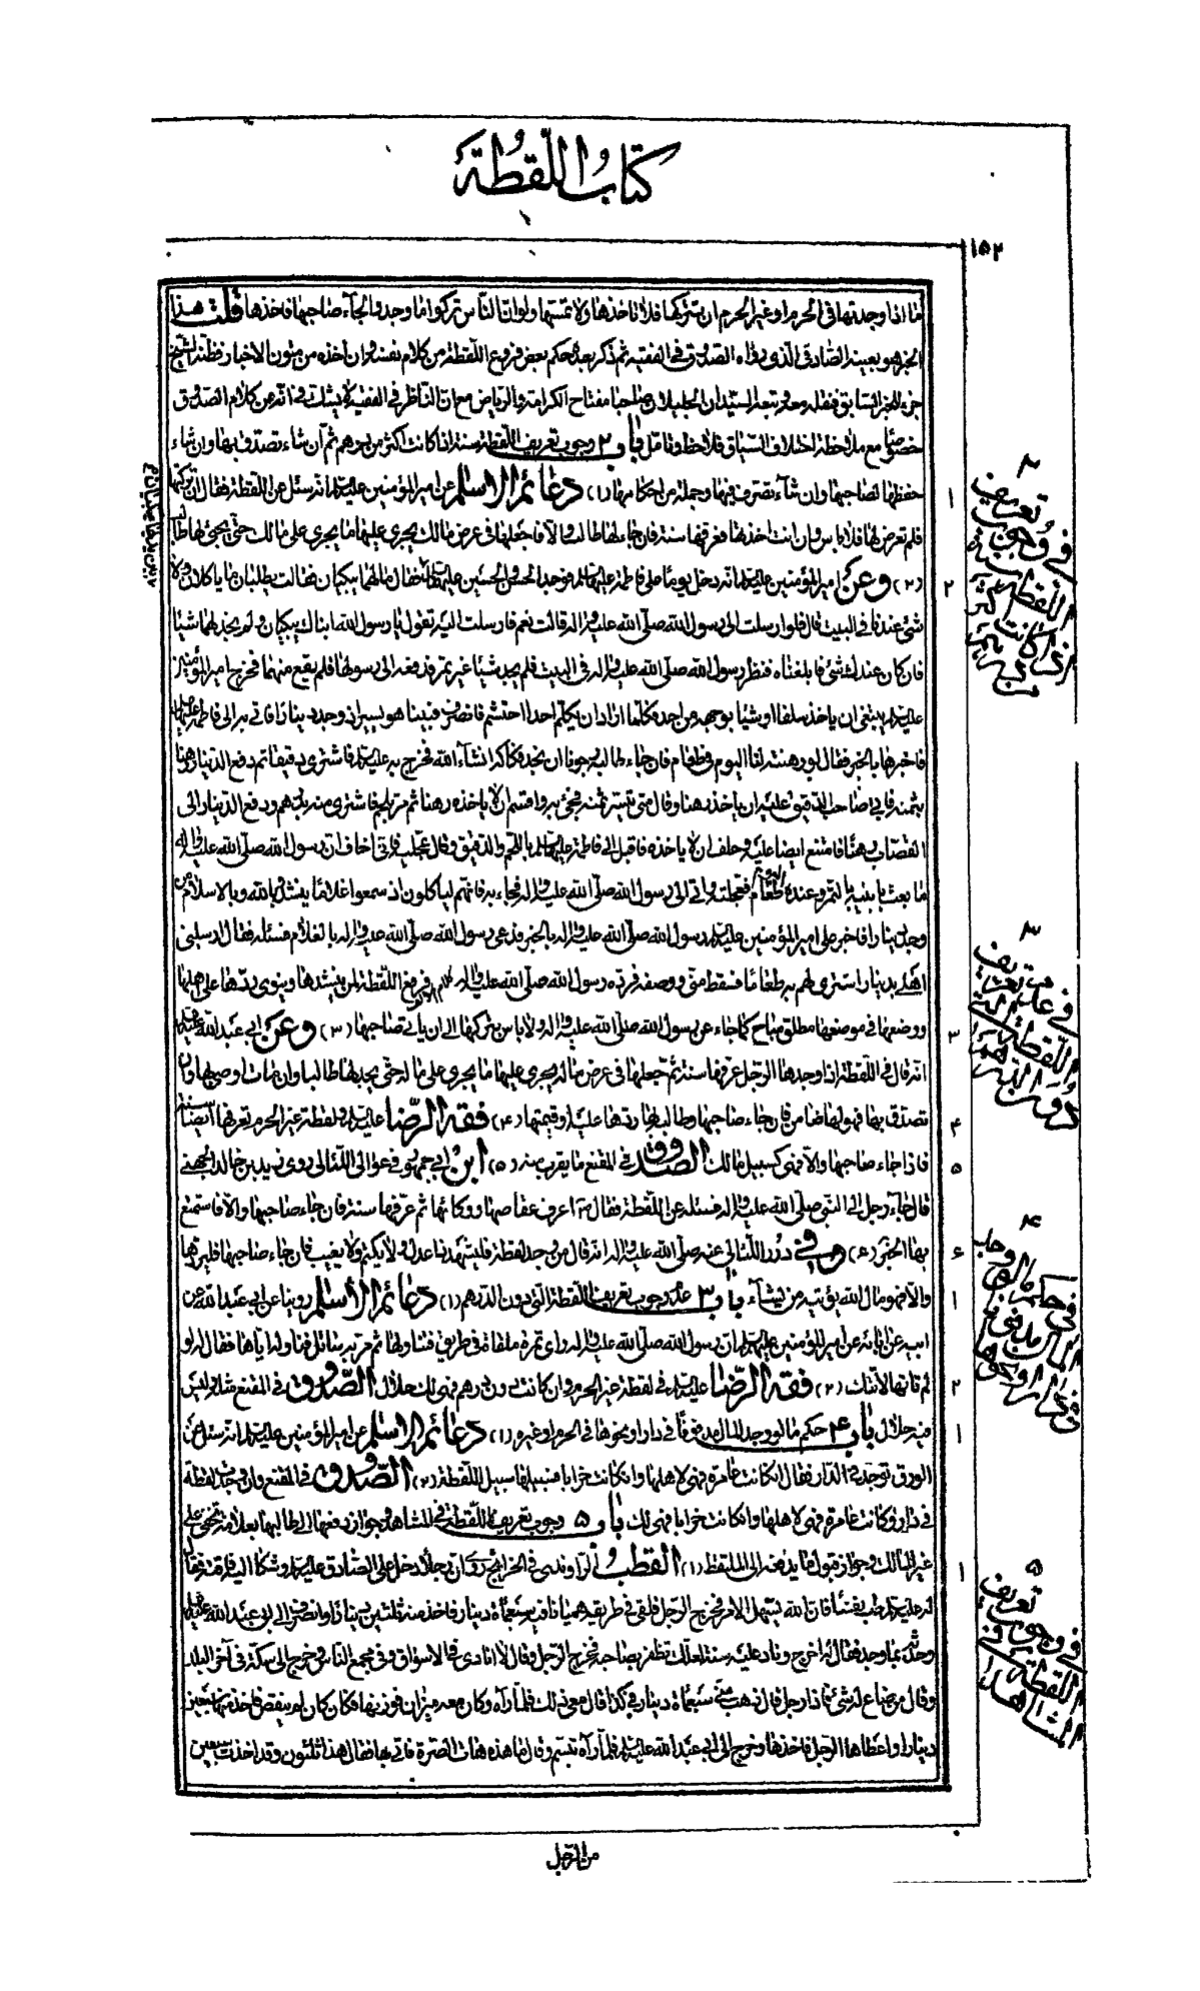 كتاب اللقطة
١٥٢
فاذا وجدتها فى الحرم او غير الحرم ان تتركها فلا تاخذها ولا تمسها ولو ان الناس تركوا ما وجدوا لجاء صاحبها فاخذها قلت هذا
الخبر هو بعينه الصادقى الذى رواه الصدوق فى الفقيه ثم ذكر بعده حكم بعض فروع اللقطة من كلام نفسه وان اخذه من متون الاخبار فظنه الشيخ
جزء للخبر السابق فنقله معه وتبعه السيدان الجليلان صاحبا مفتاح الكرامة والرياض مع ان الناظر فى الفقيه لا يشك فى انه من كلام الصدوق
خصوصا مع ملاحظة اختلاف السياق فلاحظ وتامل باب ٢ وجوب تعريف اللقطة سنة اذا كانت اكثر من درهم ثم ان شاء تصدق بها وان شاء
حفظها لصاحبها وان شاء تصرف فيها وجملة من احكامها (١) دعائم الاسلام عن امير المؤمنين عليه السلام انه سئل عن اللقطة فقال ان تركتها
فلم تعرض لها فلا باس وان انت اخذتها فعرفها سنة فان جاء لها طالب والا فاجعلها فى عرض مالك يجرى عليها ما يجرى على مالك حتى يجئ لها طالب
(٢) وعن امير المؤمنين عليه السلام انه دخل يوما على فاطمة عليها السلام فوجد الحسن والحسين عليهما السلام يبكيان فقال مالهما يبكيان فقالت يطلبان ما ياكلان ولا
شئ عندنا فى البيت قال فلو ارسلت الى رسول الله صلى الله عليه واله قالت نعم فارسلت اليه تقول يا رسول الله ابناك يبكيان ولم نجد لهما شيئا
فان كان عندك شئ فابلغناه فنظر رسول الله صلى الله عليه واله فى البيت فلم يجد شيئا غير تمر فدفعه الى رسولها فلم يقع منهما فخرج امير المؤمنين
عليه السلام يبتغى ان ياخذ سلفا او شيئا بوجهه من احد فكلما اراد ان يكلم احدا احتشم فانصرف فبينا هو يسير اذ وجد دينارا فاتى به الى فاطمة عليها السلام
فاخبرها بالخبر فقالت لو رهنته لنا اليوم فى طعام فان جاء طالبه رجونا ان نجد فكاكه انشاء الله فخرج به عليه السلام فاشترى دقيقا ثم دفع الدينار رهنا
بثمنه فابى صاحب الدقيق عليه ان ياخذ رهنا وقال متى تيسر ثمنه فجئ به واقسم ان لا ياخذه رهنا ثم مر بلحم فاشترى منه بدرهم ودفع الدينار الى
القصاب رهنا فامتنع ايضا عليه وحلف ان لا ياخذه فاقبل الى فاطمة عليها السلام باللحم والدقيق وقال عجليه فانى اخاف ان رسول الله صلى الله عليه واله
ما بعث بابنيه بالتمر وعنده اليوم طعام فعجلته واتى الى رسول الله صلى الله عليه واله فجاء به فانهم لياكلون اذ سمعوا غلاما ينشد بالله وبالاسلام من
وجد دينارا فاخبر على امير المؤمنين عليه السلام رسول الله صلى الله عليه واله بالخبر فدعى رسول الله صلى الله عليه واله بالغلام فسئله فقال ارسلنى
اهلى بدينار اشترى لهم به طعاما فسقط منى ووصفه فرده رسول الله صلى الله عليه واله فرفع اللقطة لمن ينشدها وينوى ردها على اهلها
ووضعها فى موضعها مطلق مباح كما جاء عن رسول الله صلى الله عليه واله ولا باس بتركها الى ان ياتى صاحبها (٣) وعن ابى عبد الله عليه السلام
انه قال فى اللقطة اذا وجدها الرجل عرفها سنة ثم يجعلها فى عرض ماله يجرى عليها ما يجرى على ماله حتى يجد لها طالبا وان مات اوصى بها وان
تصدق بها فهو لها ضامن فان جاء صاحبها وطالبه بها ردها عليه او قيمتها (۴) فقه الرضا عليه السلام ولقطة غير الحرم تعرفها ايضا سنة
فاذا جاء صاحبها والا فهى كسبيل مالك الصدوق فى المقنع ما يقرب منه (۵) ابن ابى جمهور فى عوالى اللئالى روى زيد بن خالد الجهنى
قال جاء رجل الى النبى صلى الله عليه واله فسئله عن اللقطة فقال ص اعرف عفاصها ووكائها ثم عرفها سنة فان جاء صاحبها والا فاستمتع
بها الخبر (۶) وفى درر اللئالى عنه صلى الله عليه واله انه قال من وجد لقطة فليشهد ذا عدل ولا يكتم ولا يغيب فان جاء صاحبها فليردها
والا فهو مال الله يؤتيه من يشاء باب ٣ عدم وجوب تعريف اللقطة التى دون الدرهم (١) دعائم الاسلام روينا عن ابى عبد الله عن
ابيه عن ابائه عن امير المؤمنين عليهم السلام ان رسول الله صلى الله عليه واله راى تمرة ملقاة فى طريق فتناولها ثم مر به سائل فناوله اياها فقال له لو
لم تاتها لاتتك (٢) فقه الرضا عليه السلام فى لقطة غير الحرم وان كانت دون درهم فهى لك حلال الصدوق فى المقنع مثله وليس
فيه حلال باب ۴ حكم ما لو وجد المال مدفونا فى دار او نحوها فى الحرم او غيره (١) دعائم الاسلام عن امير المؤمنين عليه السلام انه سئل عن
الورق توجد فى الدار فقال ان كانت عامرة فهى لاهلها وان كانت خرابا فسبيلها سبيل اللقطة (٢) الصدوق فى المقنع وان وجدت لقطة
فى دار وكانت عامرة فهى لاهلها وان كانت خرابا فهى لك باب ۵ وجوب تعريف اللقطة فى المشاهد وجواز دفعها الى طالبها بعلامة تخفى على
غير المالك وجواز قبول ما يدفعه الى الملتقط (١) القطب الراوندى فى الخرائج روى ان رجلا دخل على الصادق عليه السلام وشكا اليه فاقته فقال
له عليه السلام طب نفسا فان الله يسهل الامر فخرج الرجل فلقى فى طريقه هميانا فيه سبعمأة دينار فاخذ منه ثلثين دينارا وانصرف الى ابى عبد الله عليه السلام
وحدثه بما وجد فقال له اخرج وناد عليه سنة لعلك تظفر بصاحبه فخرج الرجل وقال لا انادى فى الاسواق وفى مجمع الناس وخرج الى سكة فى آخر البلد
وقال من ضاع له شئ فاذا رجل قال ذهب منى سبعمأة دينار فى كذا قال معى ذلك فلما رآه وكان معه ميزان فوزنها فكان كما كان لم ينقص فاخذ منها سبعين
دينارا واعطاها الرجل فاخذها وخرج الى ابى عبد الله عليه السلام فلما رآه تبسم وقال ما هذه هات الصرة فاتى بها فقال هذا ثلثون وقد اخذت سبعين
من الرجل
٢
فى وجوب تعريف
اللقطة سنة
اذا كانت اكثر
من درهم
٣
فى عدم تعريف
اللقطة التى
دون الدرهم
۴
فى حكم ما لو وجد
المال مدفونا
فى دار او نحوها
۵
فى وجوب تعريف
اللقطة فى
المشاهد